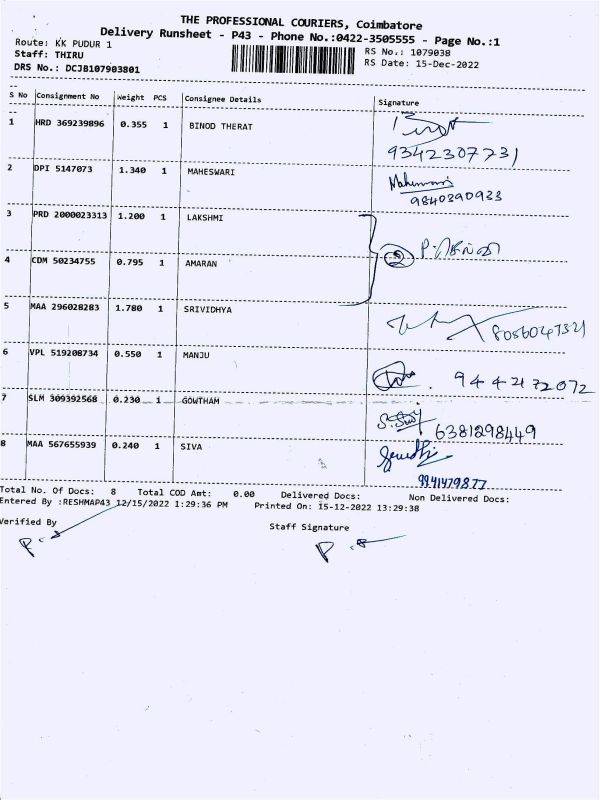 THE PROFESSIONAL COURIERS, Coimbatore
Delivery Runsheet - P43 - Phone No.:0422-3505555 - Page No.:1
Route: KK PUDUR 1
Staff: THIRU
DRS No.: DCJB107903801
RS No.: 1079038
RS Date: 15-Dec-2022
S No Consignment No Weight PCS Consignee Details Signature
1 HRD 369239896 0.355 1 BINOD THERAT
9342307731
2 DPI 5147073 1.340 1 MAHESWARI
Maheswari
9840390933
3 PRD 2000023313 1.200 1 LAKSHMI
4 CDM 50234755 0.795 1 AMARAN
5 MAA 296028283 1.780 1 SRIVIDHYA
8056047321
6 VPL 519208734 0.550 1 MANJU
9442172072
7 SLM 309392568 0.230 1 GOWTHAM
6381298449
8 MAA 567655939 0.240 1 SIVA
9941479877
Total No. Of Docs: 8 Total COD Amt: 0.00 Delivered Docs: Non Delivered Docs:
Entered By :RESHMAP43 12/15/2022 1:29:36 PM Printed On: 15-12-2022 13:29:38
Verified By Staff Signature